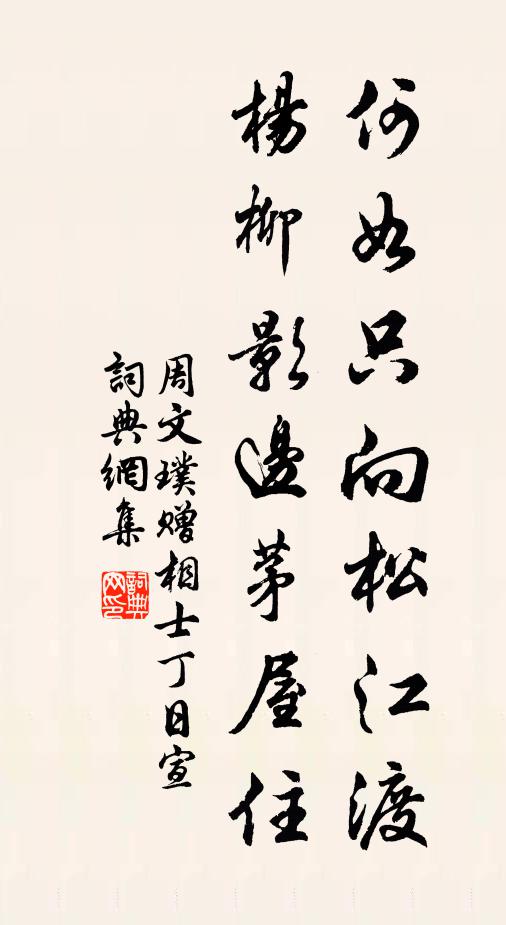 何如只向松江渡
楊柳影邊茅屋住
周文璞贈相士丁日宣
詞典網集
詞典网印